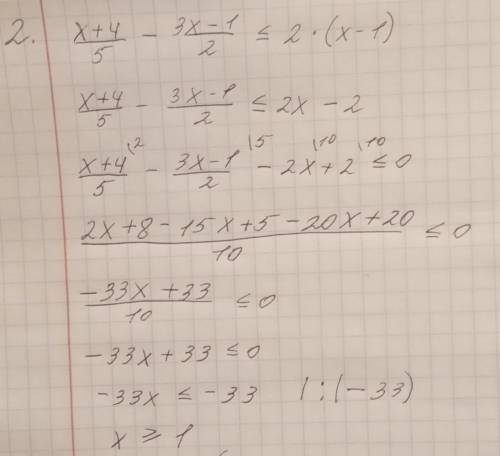 2. (x+4)/5 - (3x-1)/2 ≤ 2·(x-1)
(x+4)/5 - (3x-1)/2 ≤ 2x - 2
(x+4)/5 \2 - (3x-1)/2 \5 - 2x \10 + 2 \10 ≤ 0
(2x+8-15x+5-20x+20)/10 ≤ 0
(-33x+33)/10 ≤ 0
-33x+33 ≤ 0
-33x ≤ -33 | :(-33)
x ≥ 1